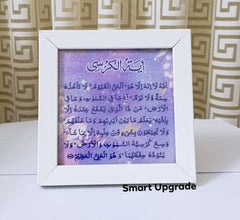 آية الكرسي
اللهُ لَا إِلٰهَ إِلَّا هُوَ الْحَيُّ الْقَيُّومُ لَا تَأْخُذُهُ
سِنَةٌ وَلَا نَوْمٌ لَهُ مَا فِي السَّمٰوٰتِ وَمَا فِي
الْأَرْضِ مَنْ ذَا الَّذِي يَشْفَعُ عِنْدَهُ إِلَّا
بِإِذْنِهِ يَعْلَمُ مَا بَيْنَ أَيْدِيهِمْ وَمَا خَلْفَهُمْ
وَلَا يُحِيطُونَ بِشَيْءٍ مِنْ عِلْمِهِ إِلَّا بِمَا شَاءَ
وَسِعَ كُرْسِيُّهُ السَّمٰوٰتِ وَالْأَرْضَ وَلَا
يَئُودُهُ حِفْظُهُمَا وَهُوَ الْعَلِيُّ الْعَظِيمُ
Smart Upgrade